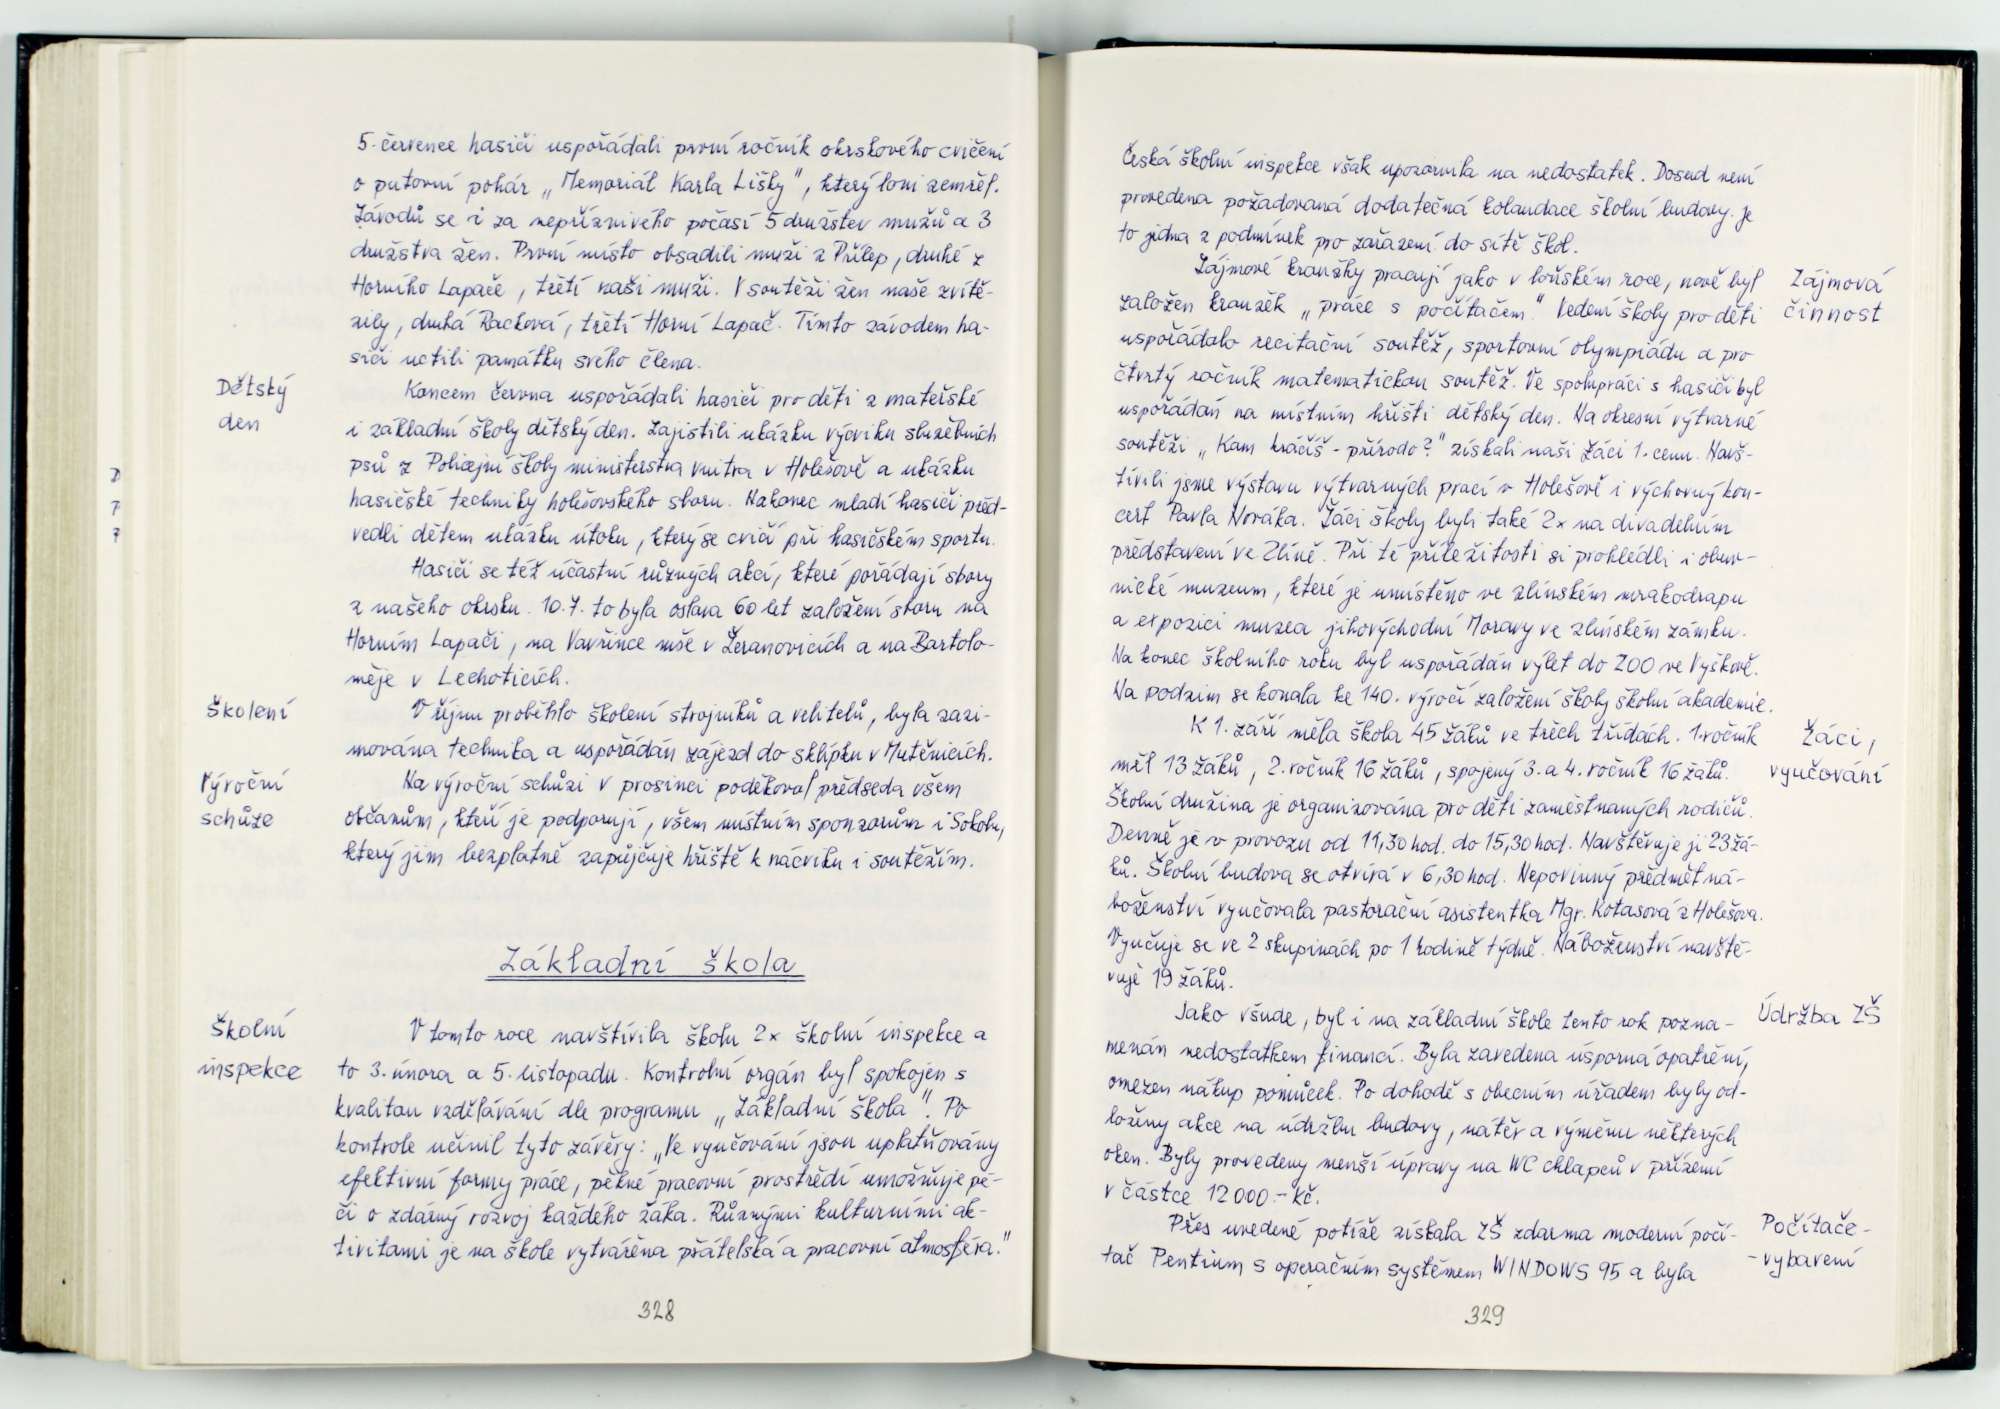 5. července hasiči uspořádali první ročník okrskového cvičení
o putovní pohár „Memoriál Karla Lišky", který loni zemřel.
Závodů se i za nepříznivého počasí 5 družstev mužů a 3
družstva žen. První místo obsadili muži z Přílep, druhé z
Horního Lapače, třetí naši muži. V soutěži žen naše zvítě-
zily, druhá Racková, třetí Horní Lapač. Tímto závodem ha-
siči uctili památku svého člena.
Dětský
den
Koncem června uspořádali hasiči pro děti z mateřské
i základní školy dětský den. Zajistili ukázku výcviku služebních
psů z Policejní školy ministerstva vnitra v Holešově a ukázku
hasičské techniky holešovského sboru. Nakonec mladí hasiči před-
vedli dětem ukázku útoku, který se cvičí při hasičském sportu.
Hasiči se též účastní různých akcí, které pořádají sbory
z našeho okrsku. 10.7. to byla oslava 60 let založení sboru na
Horním Lapači, na Vavřince mše v Žeranovicích a na Bartolo-
měje v Lechoticích.
Školení
V říjnu proběhlo školení strojníků a velitelů, byla zazi-
mována technika a uspořádán zájezd do sklípku v Mutěnicích.
Výroční
schůze
Na výroční schůzi v prosinci poděkoval předseda všem
občanům, kteří je podporují, všem místním sponzorům i Sokolu,
který jim bezplatně zapůjčuje hřiště k nácviku i soutěžím.
Základní škola
Školní
inspekce
V tomto roce navštívila školu 2x školní inspekce a
to 3. února a 5. listopadu. Kontrolní orgán byl spokojen s
kvalitou vzdělávání dle programu „Základní škola". Po
kontrole učinil tyto závěry: „Ve vyučování jsou uplatňovány
efektivní formy práce, pěkné pracovní prostředí umožňuje pé-
či o zdárný rozvoj každého žáka. Různými kulturními ak-
tivitami je na škole vytvářena přátelská a pracovní atmosféra."
328
Česká školní inspekce však upozornila na nedostatek. Dosud není
provedena požadovaná dodatečná kolaudace školní budovy. Je
to jedna z podmínek pro zařazení do sítě škol.
Zájmová
činnost
Zájmové kroužky pracují jako v loňském roce, nově byl
založen kroužek „práce s počítačem". Vedení školy pro děti
uspořádalo recitační soutěž, sportovní olympiádu a pro
čtvrtý ročník matematickou soutěž. Ve spolupráci s hasiči byl
uspořádán na místním hřišti dětský den. Na okresní výtvarné
soutěži „Kam kráčíš - přírodo?" získali naši žáci 1. cenu. Navš-
tívili jsme výstavu výtvarných prací v Holešově i výchovný kon-
cert Pavla Nováka. Žáci školy byli také 2x na divadelním
představení ve Zlíně. Při té příležitosti si prohlédli i obuv-
nické muzeum, které je umístěno ve zlínském mrakodrapu
a expozici muzea jihovýchodní Moravy ve zlínském zámku.
Na konec školního roku byl uspořádán výlet do ZOO ve Vyškově.
Na podzim se konala ke 140. výročí založení školy školní akademie.
Žáci,
vyučování
K 1. září měla škola 45 žáků ve třech třídách. 1. ročník
měl 13 žáků, 2. ročník 16 žáků, spojený 3. a 4. ročník 16 žáků.
Školní družina je organizována pro děti zaměstnaných rodičů.
Denně je v provozu od 11,30 hod. do 15,30 hod. Navštěvuje ji 23 žá-
ků. Školní budova se otvírá v 6,30 hod. Nepovinný předmět ná-
boženství vyučovala pastorační asistentka Mgr. Kotasová z Holešova.
Vyučuje se ve 2 skupinách po 1 hodině týdně. Náboženství navště-
vuje 19 žáků.
Údržba ZŠ
Jako všude, byl i na základní škole tento rok pozna-
menán nedostatkem financí. Byla zavedena úsporná opatření,
omezen nákup pomůcek. Po dohodě s obecním úřadem byly od-
loženy akce na údržbu budovy, nátěr a výměnu některých
oken. Byly provedeny menší úpravy na WC chlapců v přízemí
v částce 12000.- Kč.
Počítače-
-vybavení
Přes uvedené potíže získala ZŠ zdarma moderní počí-
tač Pentium s operačním systémem WINDOWS 95 a byla
329